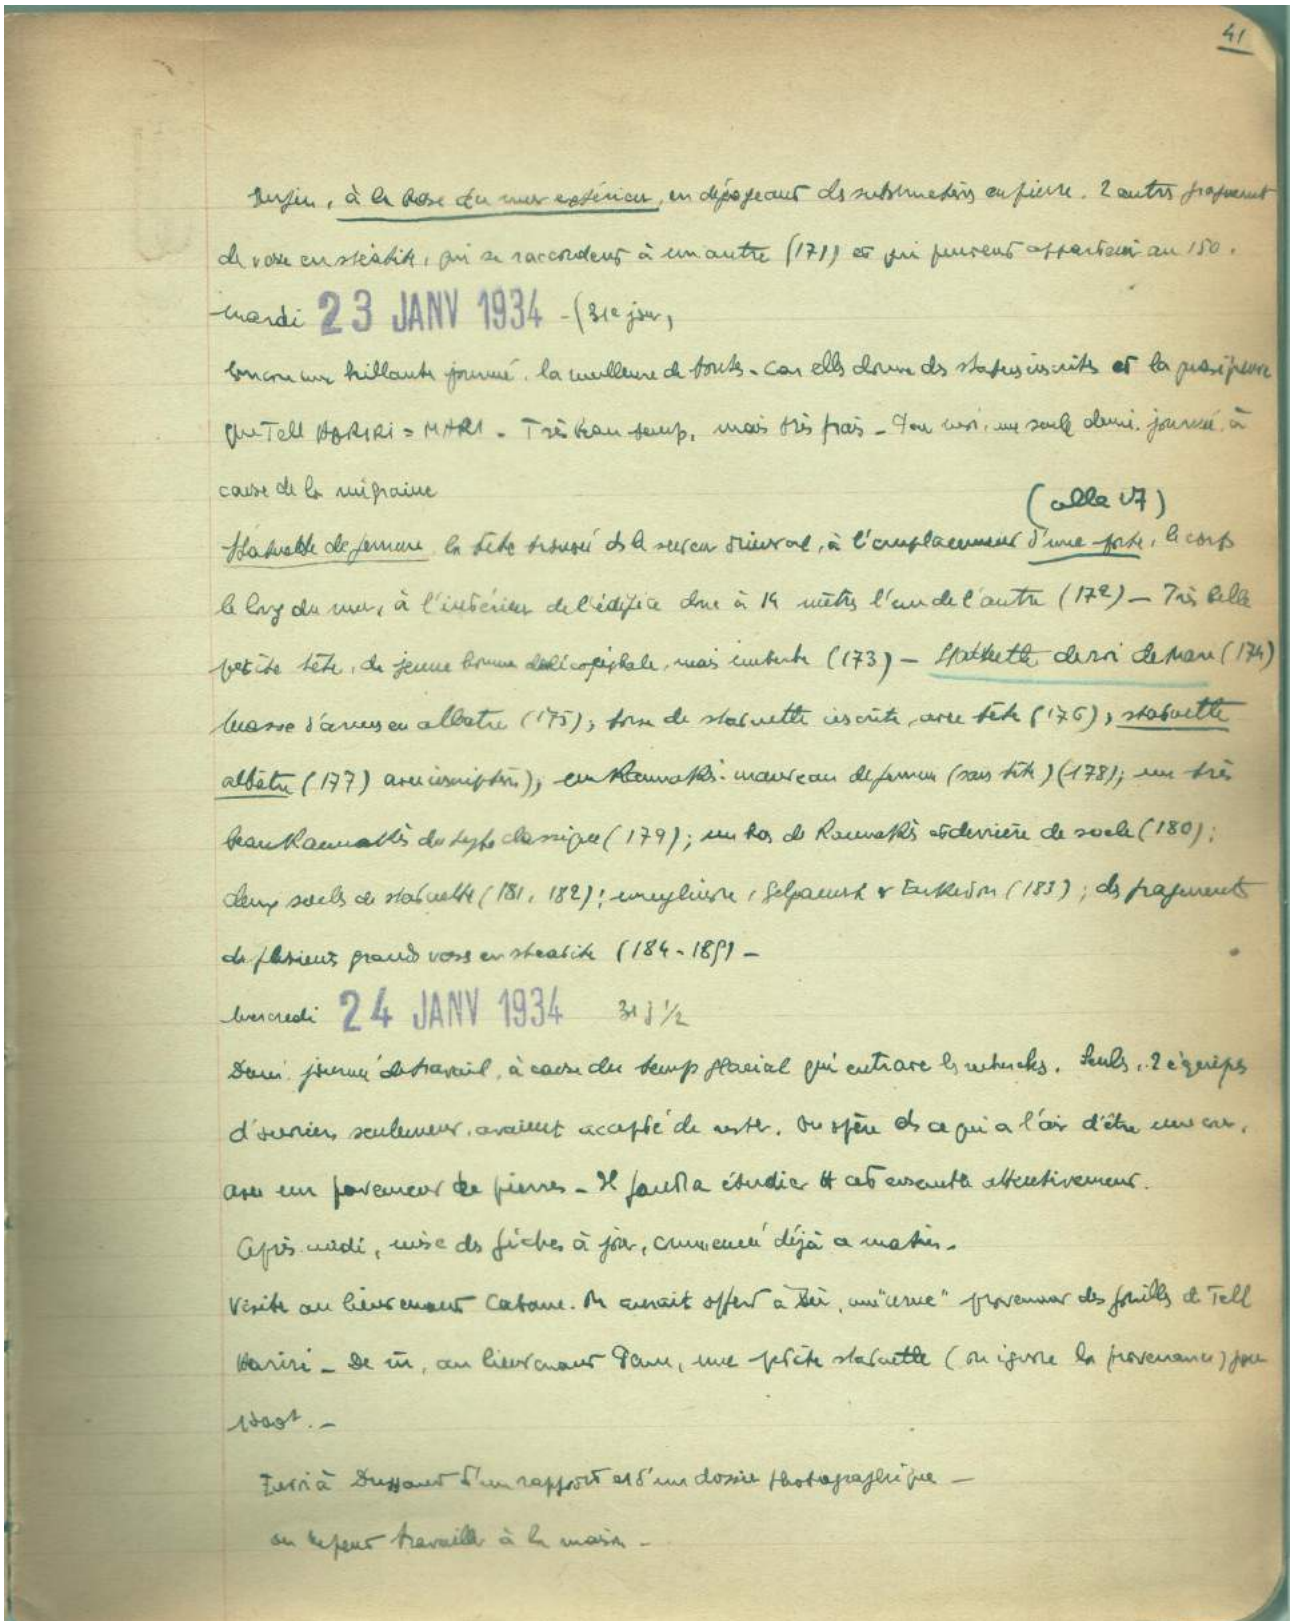 41
Enfin, à la base du mur extérieur, en dégageant ds substructions en pierre. 2 autres fragments
de vase en stéatite, qui se raccordent à un autre (171) et qui peuvent appartenir au 150.
mardi 23 JANV 1934 - (31e jour,
Encore une brillante journée, la meilleure de toutes - car elle donne des statues inscrites et la preuve
que Tell HARIRI = MARI - Très beau temps, mais très frais - Pour moi, une seule demi journée, à
cause de la migraine
(salle 17)
Statuette de femme, la tête trouvée ds le secteur, à l'emplacement d'une porte, le corps
le long du mur, à l'intérieur de l'édifice donc à 14 mètres l'un de l'autre (172) - Très belle
petite tête, de jeune homme, mais imberbe (173) - Statuette de roi de Mari (174)
Masse d'armes en albatre (175); torse de statuette inscrite, avec tête (176), statuette
albâtre (177) avec inscription); un Kaunakès-manteau de femme (sans tête) (178); un très
beau Kaunakès du type classique (179); un bas de Kaunakès et derrière de socle (180);
deux socles de statuette (181, 182); un cylindre, Gilgamesh & Enkidou (183); ds fragments
de plusieurs grands vases en steatite (184-189) -
Mercredi 24 JANV 1934 31 j 1/2
Demi journée de travail, à cause du temps glacial qui entrave ls recherches. Seuls, 2 équipes
d'ouvriers seulement, avaient accepté de rester. On opère ds ce qui a l'air d'être une cour,
avec un pavement de pierres - Il faudra étudier tt cet ensemble attentivement.
Après midi, mise ds fiches à jour, commencée déjà ce matin -
Visite au lieutenant Cabane. On aurait offert à Deir, une "urne" provenant des fouilles de Tell
Hariri - De m, au lieutenant, une petite statuette (on ignore la provenance) pour
Envoi à Dussaud d'un rapport et d'un dossier photographique -
on ne peut travailler à la maison -